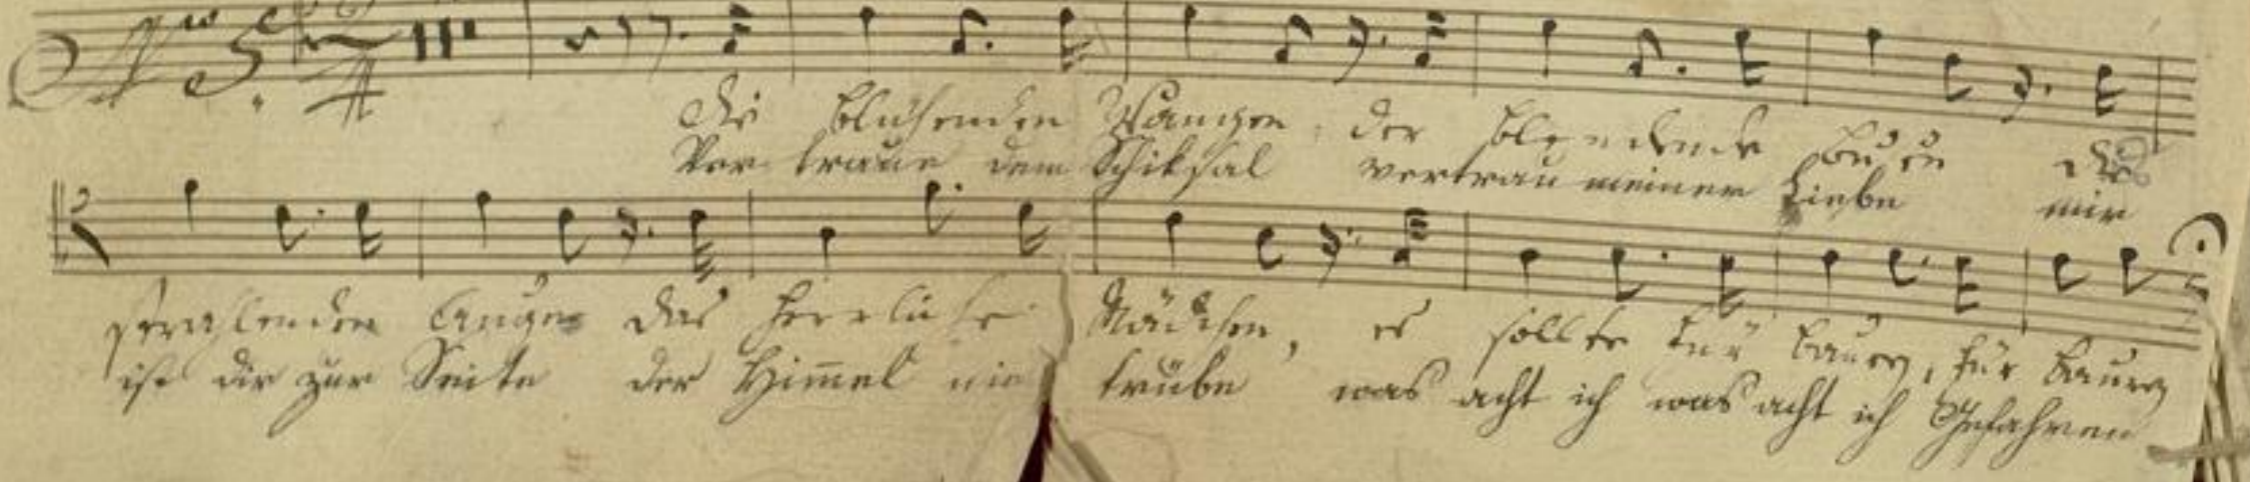 No 5.
Die blühenden Wangen, der blendende Busen die
Ver traue dem Schiksal vertrau meiner Liebe mir
stralenden Augen das herrliche Mädchen, es sollte für Bauern, für Bauern
ist dir zur Seite der Him̄el nie trübe was acht ich was acht ich Gefahren